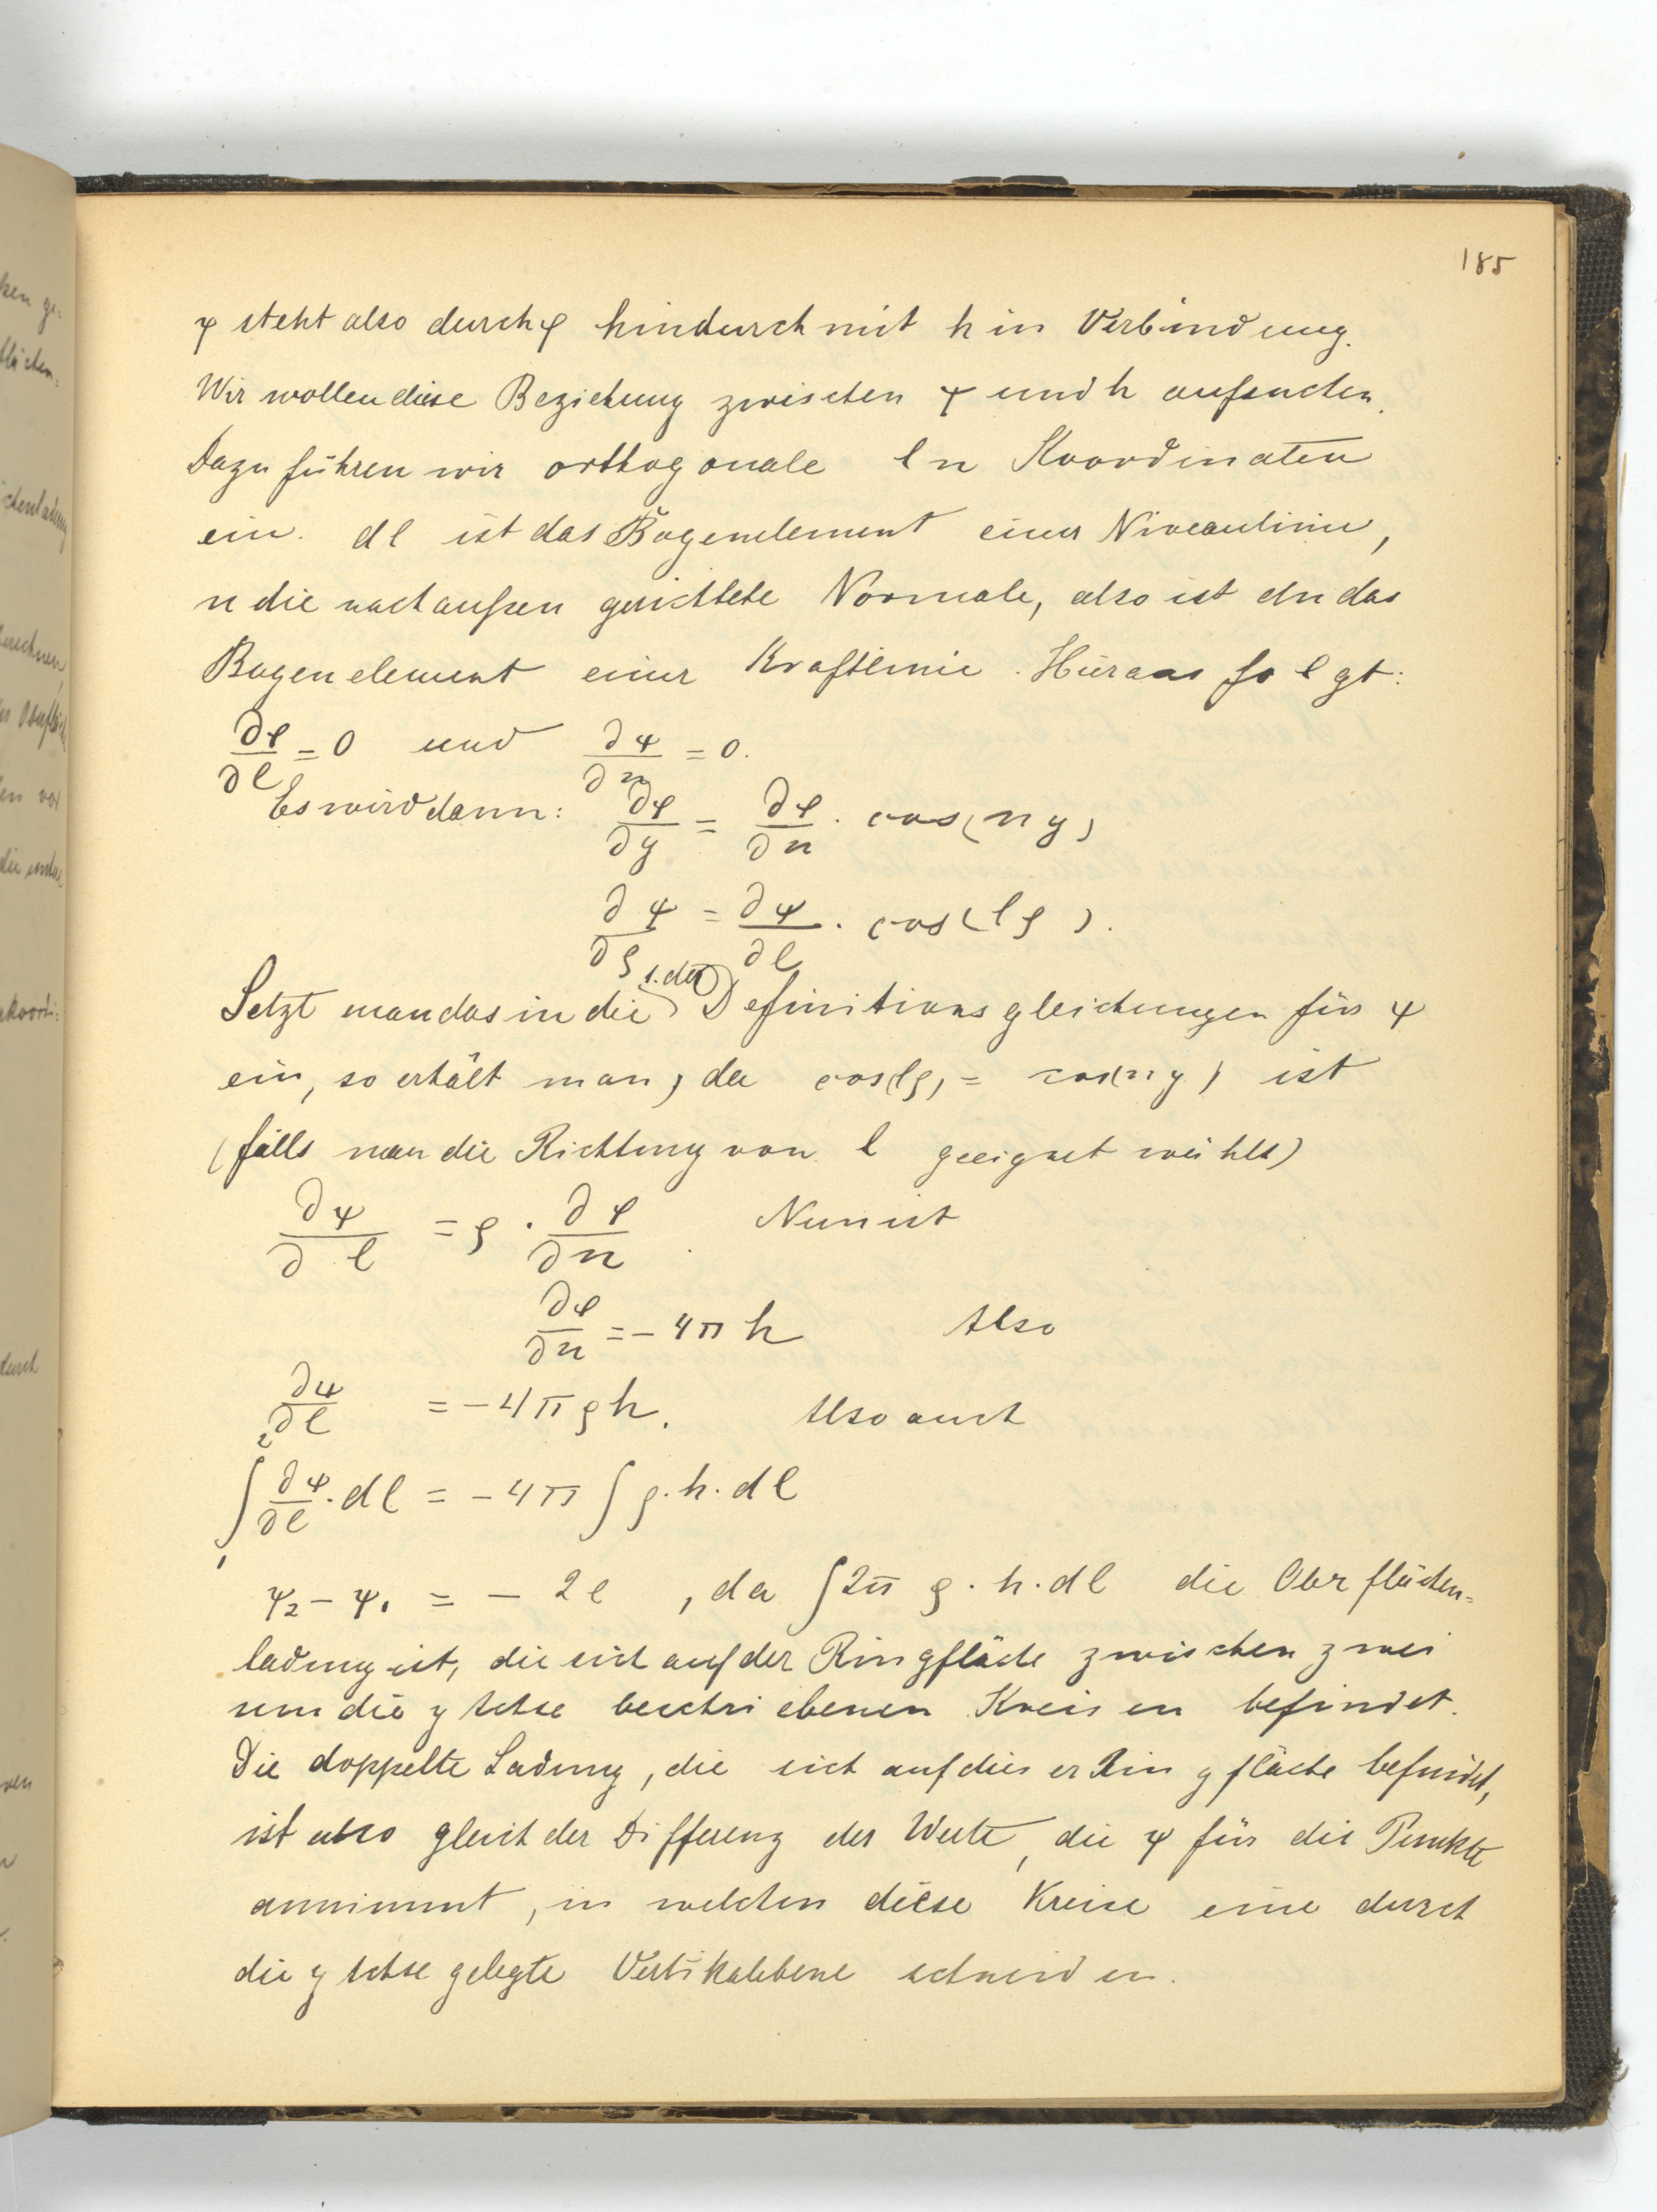 185
ψ steht also durch φ hindurch mit h in Verbindung.
Wir wollen diese Beziehung zwischen ψ und h aufsuchen.
Dazu führen wir orthogonale l n Koordinaten
ein. dl ist das Bogenelement einer Niveaulinie,
n die nach außen gerichtete Normale, also ist dn das
Bogenelement einer Kraftlinie. Hieraus folgt:
∂φ/∂l = 0 und ∂ψ/∂n = 0.
Es wird dann: ∂φ/∂y = ∂φ/∂n · cos(n y)
∂ψ/∂ρ = ∂ψ/∂l · cos(l ρ).
Setzt man das in die 1. der Definitionsgleichungen für ψ
ein, so erhält man, da cos(lρ) = cos(n y) ist
(falls man die Richtung von l geeignet wählt)
∂ψ/∂l = ρ · ∂φ/∂n. Nun ist
∂φ/∂n = − 4π h Also
∂ψ/∂l = − 4π ρ h. Also auch
∫₁² ∂ψ/∂l · dl = − 4π ∫ ρ · h · dl
ψ₂ − ψ₁ = − 2e , da ∫ 2π ρ · h · dl die Oberflächen=
ladung ist, die sich auf der Ringfläche zwischen zwei
um die y Achse beschriebenen Kreisen befindet.
Die doppelte Ladung, die sich auf dieser Ringfläche befindet,
ist also gleich der Differenz der Werte, die ψ für die Punkte
annimmt, in welchen diese Kreise eine durch
die y Achse gelegte Vertikalebene schneiden.